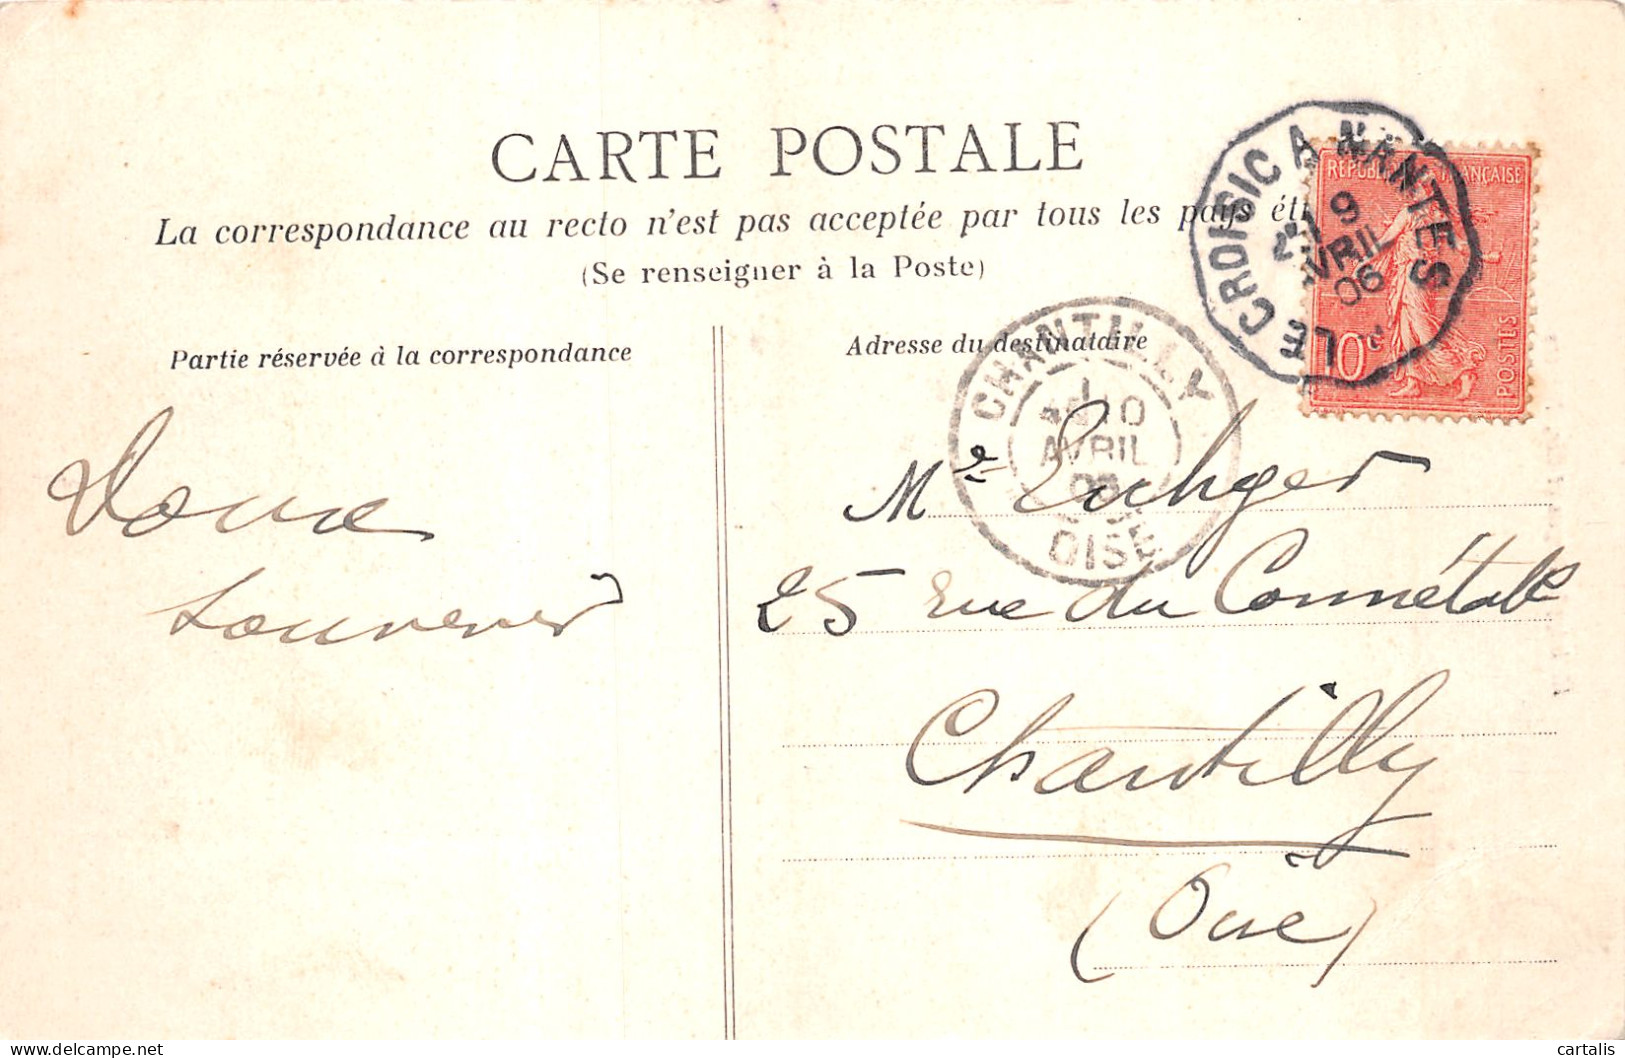 CARTE POSTALE
La correspondance au recto n'est pas acceptée par tous les pays ét
(Se renseigner à la Poste)
Partie réservée à la correspondance
Adresse du destinataire
LE CROISIC A NANTES
9
AVRIL
06
REPUBLIQUE FRANÇAISE
10c
POSTES
CHANTILLY
10
AVRIL
OISE
Doux
souvenir
25 rue du Connétable
Chantilly
(Oise)
cartalis